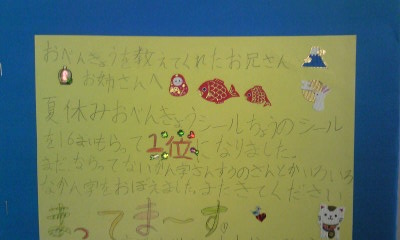 おべんきょうを教えてくれたお兄さん
お姉さんへ
夏休みおべんきょうシールちょうのシール
を16まいもらって1位になりました。
まだならってないかん字さんすうのさんとかいろいろ
なかん字をおぼえました。またきてください
まってま〜す。